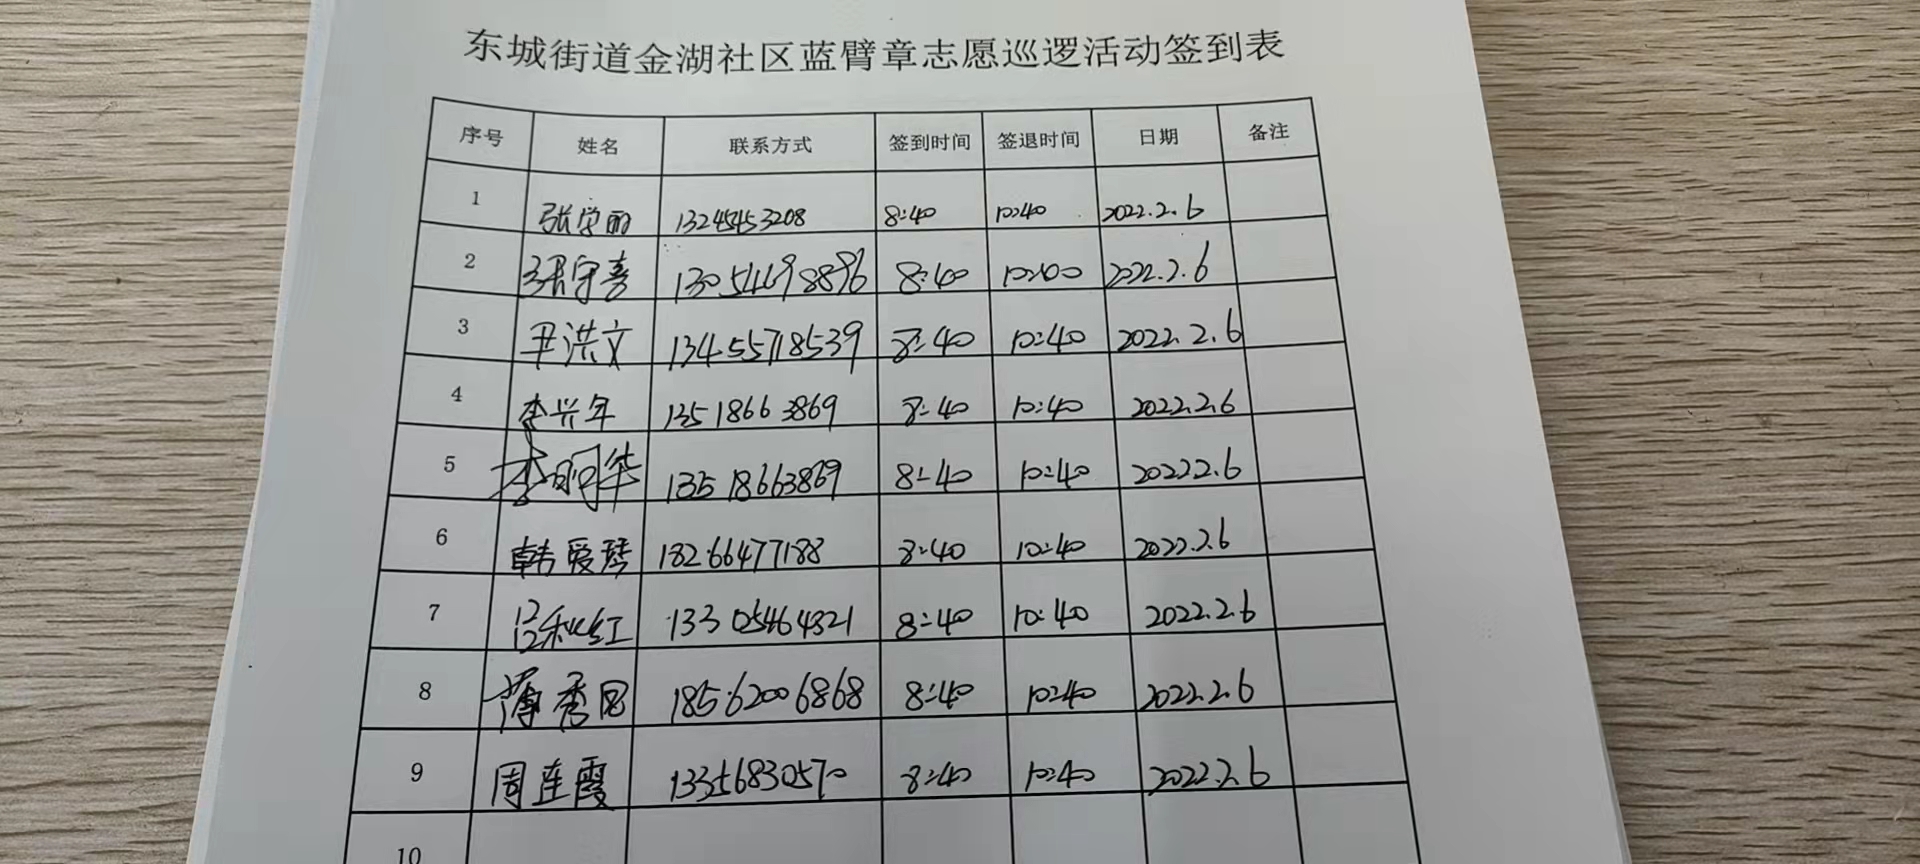 东城街道金湖社区蓝臂章志愿巡逻活动签到表
序号 姓名 联系方式 签到时间 签退时间 日期 备注
1 张学丽 13245453208 8:40 10:40 2022.2.6
2 张守喜 13054698896 8:40 10:40 2022.2.6
3 尹洪文 13455718539 8:40 10:40 2022.2.6
4 李兴年 13518663869 8:40 10:40 2022.2.6
5 李 华 13518663869 8:40 10:40 2022.2.6
6 韩爱琴 18266477188 8:40 10:40 2022.2.6
7 红 13305464321 8:40 10:40 2022.2.6
8 薄秀 18562006868 8:40 10:40 2022.2.6
9 周连霞 13356830570 8:40 10:40 2022.2.6
10